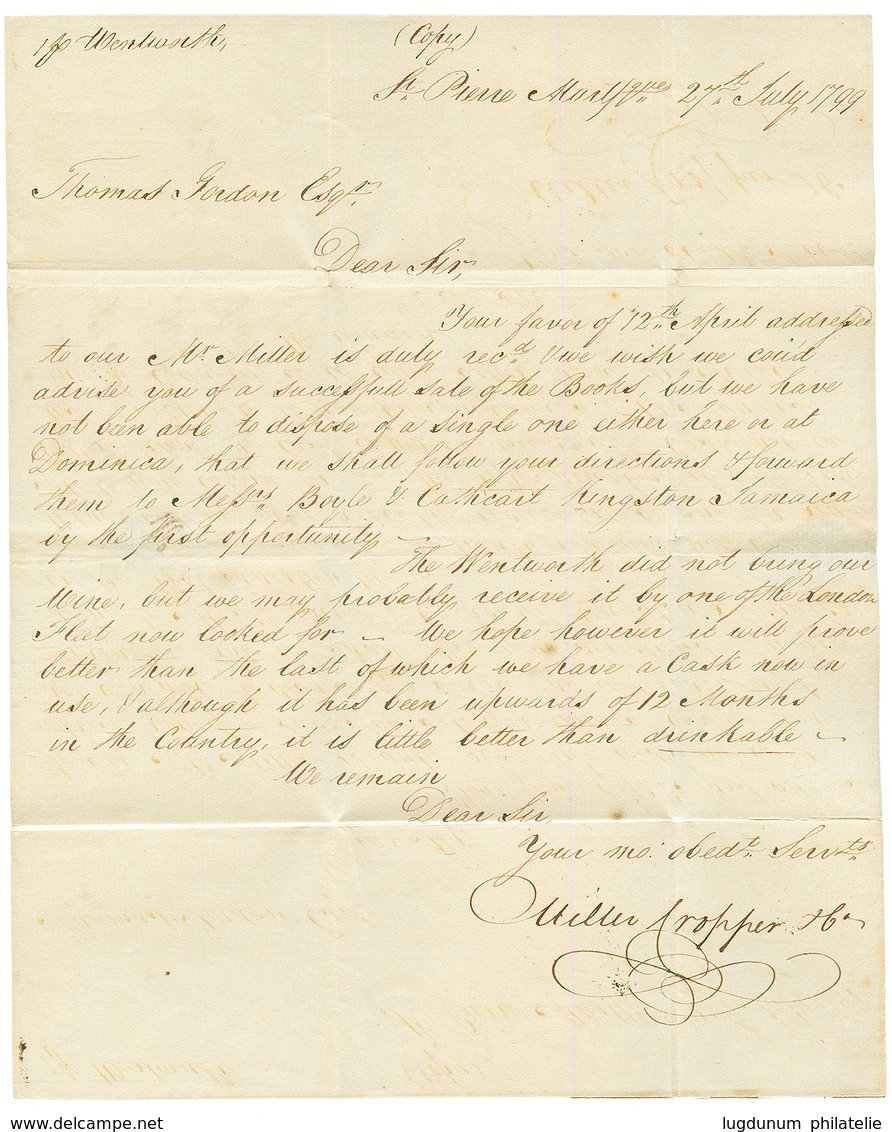 p Wentworth,
(Copy)
St. Pierre Mart/que 27th July 1799
Thomas Gordon Esqr.
Dear Sir,
Your favor of 12th April addressed
to our Mr. Miller is duly recd. & we wish we coud
advise you of a successfull sale of the Books, but we have
not been able to dispose of a single one either here or at
Dominica, that we shall follow your directions & forward
them to Messrs. Boyle & Cathcart Kingston Jamaica
by the first opportunity
The Wentworth did not bring our
Wine, but we may probably receive it by one of the London
Fleet now looked for – We hope however it will prove
better than the last of which we have a Cask now in
use, & although it has been upwards of 12 Months
in the Country, it is little better than drinkable –
We remain
Dear Sir,
Your mo: obedt. Servts.
Miller Cropper & Co
www.delcampe.net
lugdunum philatelie